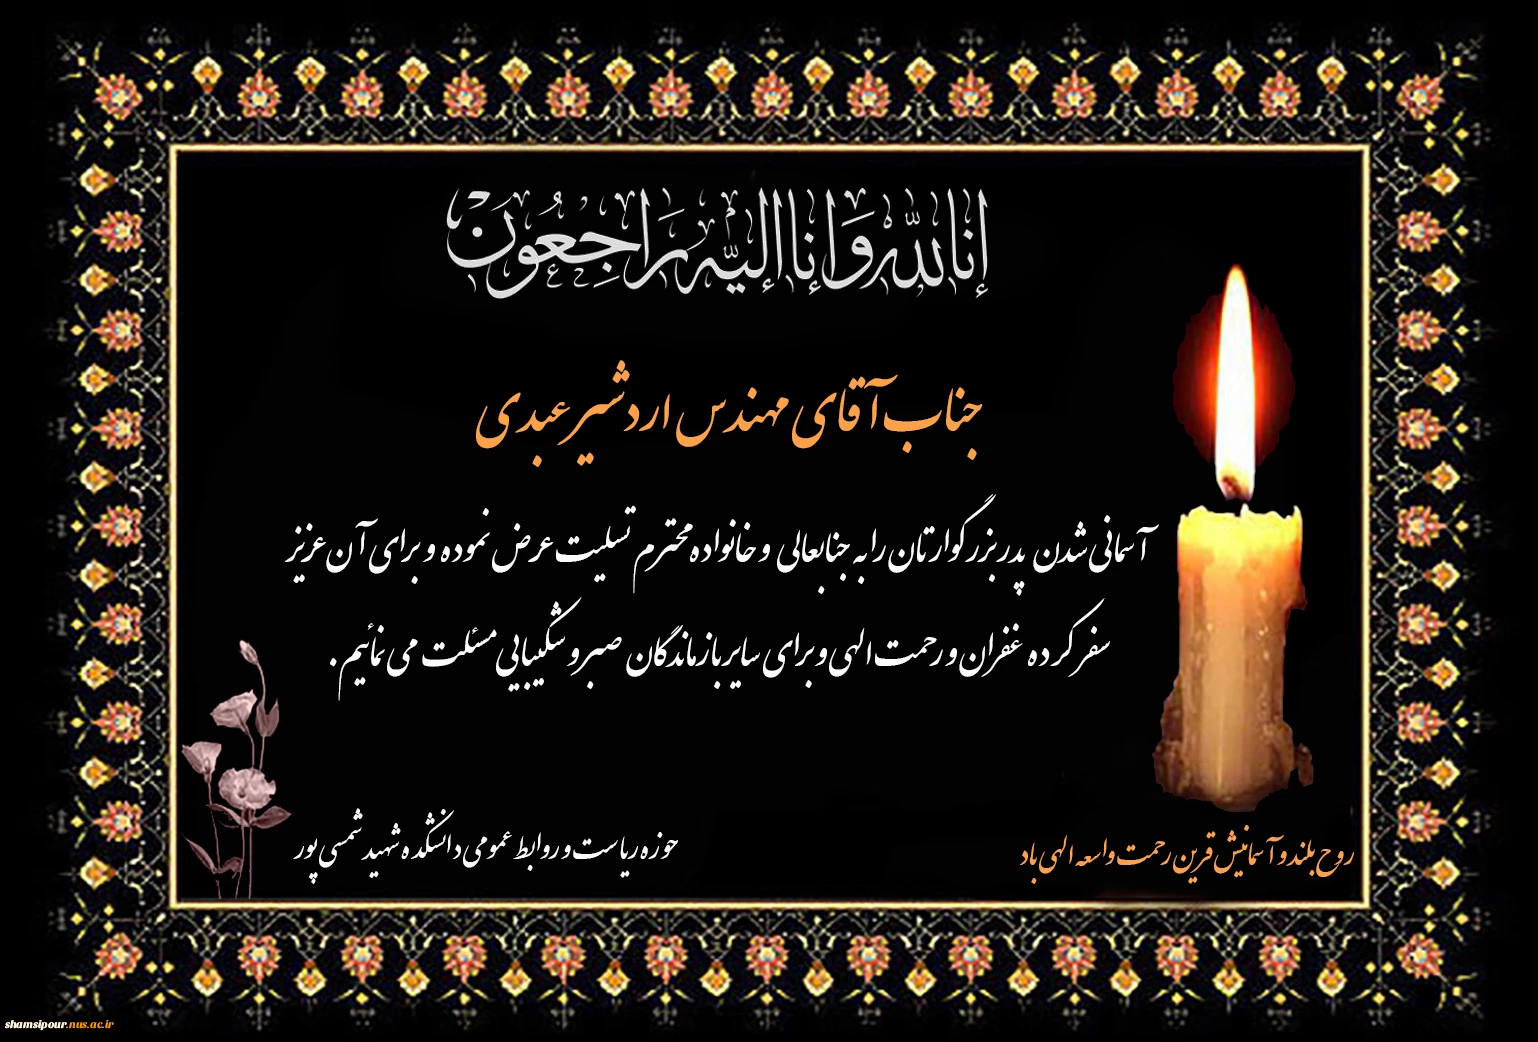 إنا لله وإنا إليه راجعون
جناب آقای مهندس اردشیر عبدی
آسمانی شدن پدر بزرگوارتان را به جنابعالی و خانواده محترم تسلیت عرض نموده و برای آن عزیز
سفر کرده غفران و رحمت الهی و برای سایر بازماندگان صبر و شکیبایی مسئلت می نمائیم.
روح بلند و آسمانیش قرین رحمت واسعه الهی باد
حوزه ریاست و روابط عمومی دانشکده شهید شمسی پور
shamsipour.nus.ac.ir